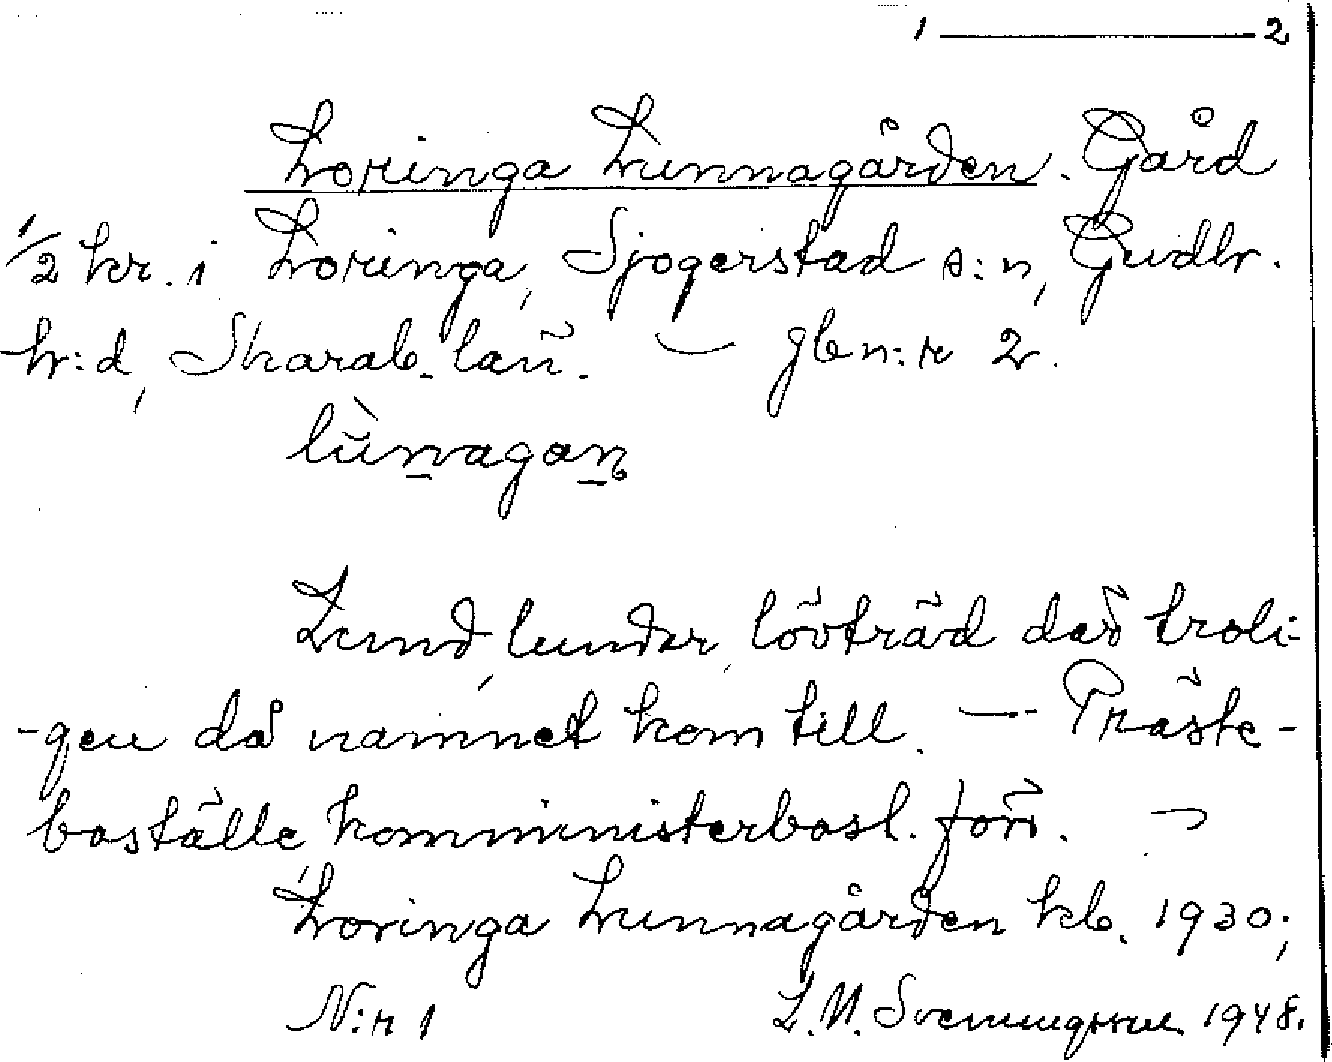 1 — 2
Loringa Lunnagården. Gård
1/2 kr. i Loringa, Sjogerstad s:n, Gudhr.
h:d, Skarab. län. — gbn:r 2.
lùnagan
Lund, lundar, lövträd där troli-
-gen då namnet kom till. — Präste-
boställe, komministerbost. förr. —
Loringa Lunnagården kb. 1930;
N:r 1 L. M. Svenungsson 1948.